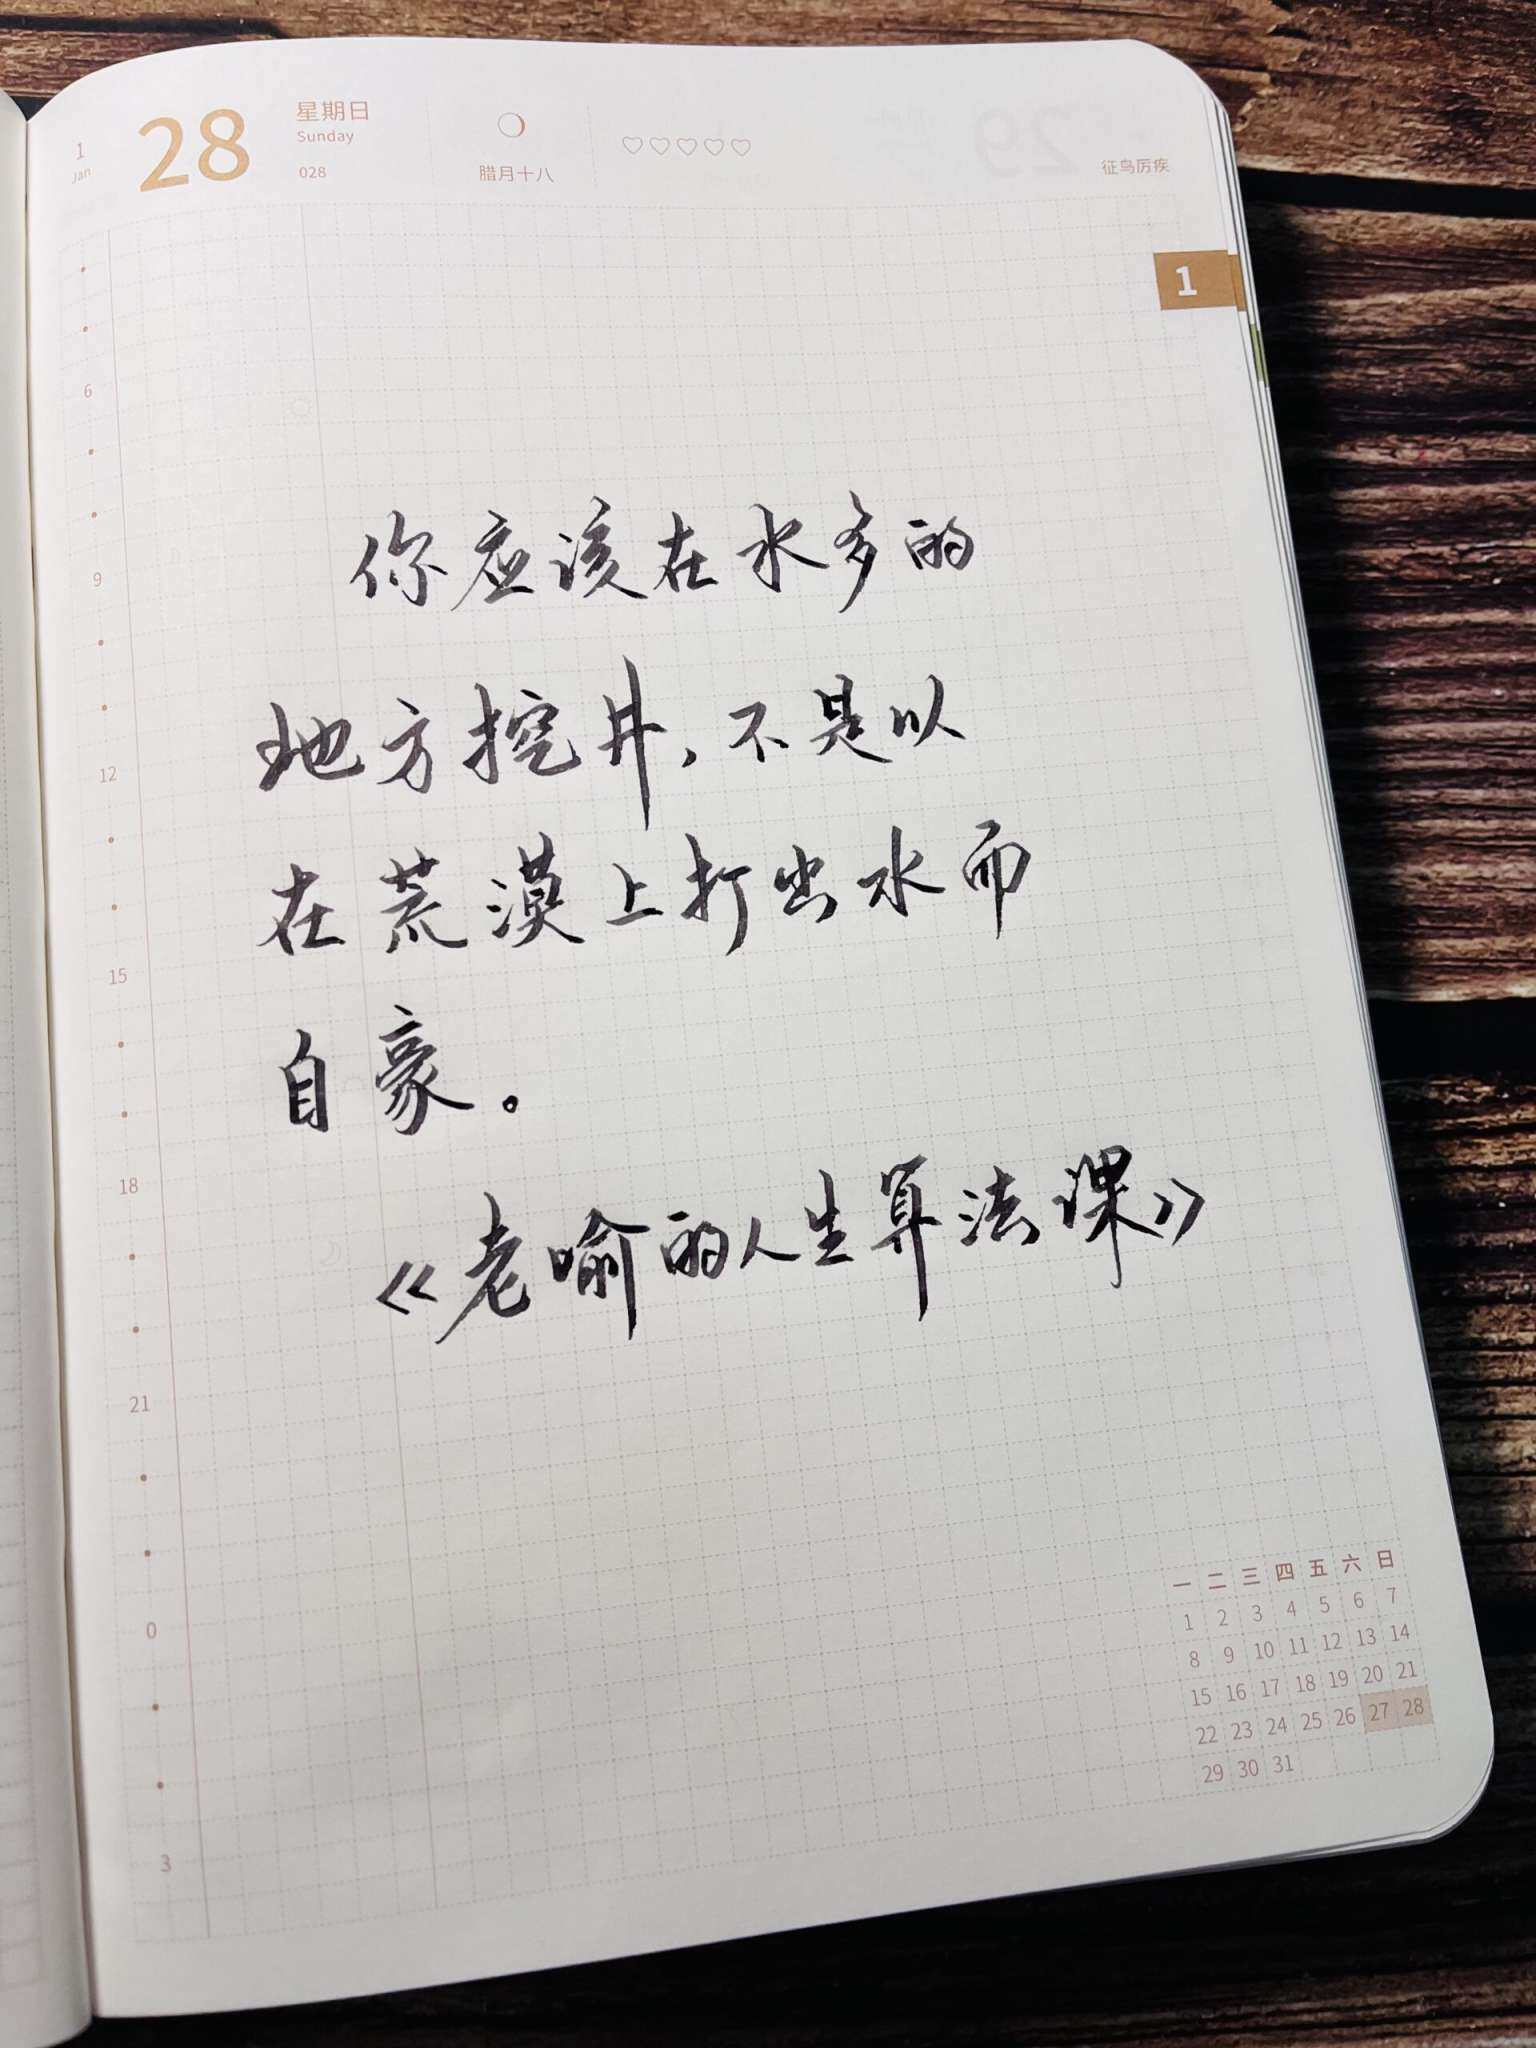 1
Jan
28
星期日
Sunday
028
腊月十八
征鸟厉疾
1
6
9
12
15
18
21
0
3
你应该在水多的
地方挖井，不是以
在荒漠上打出水而
自豪。
《老喻的人生算法课》
一 二 三 四 五 六 日
1 2 3 4 5 6 7
8 9 10 11 12 13 14
15 16 17 18 19 20 21
22 23 24 25 26 27 28
29 30 31